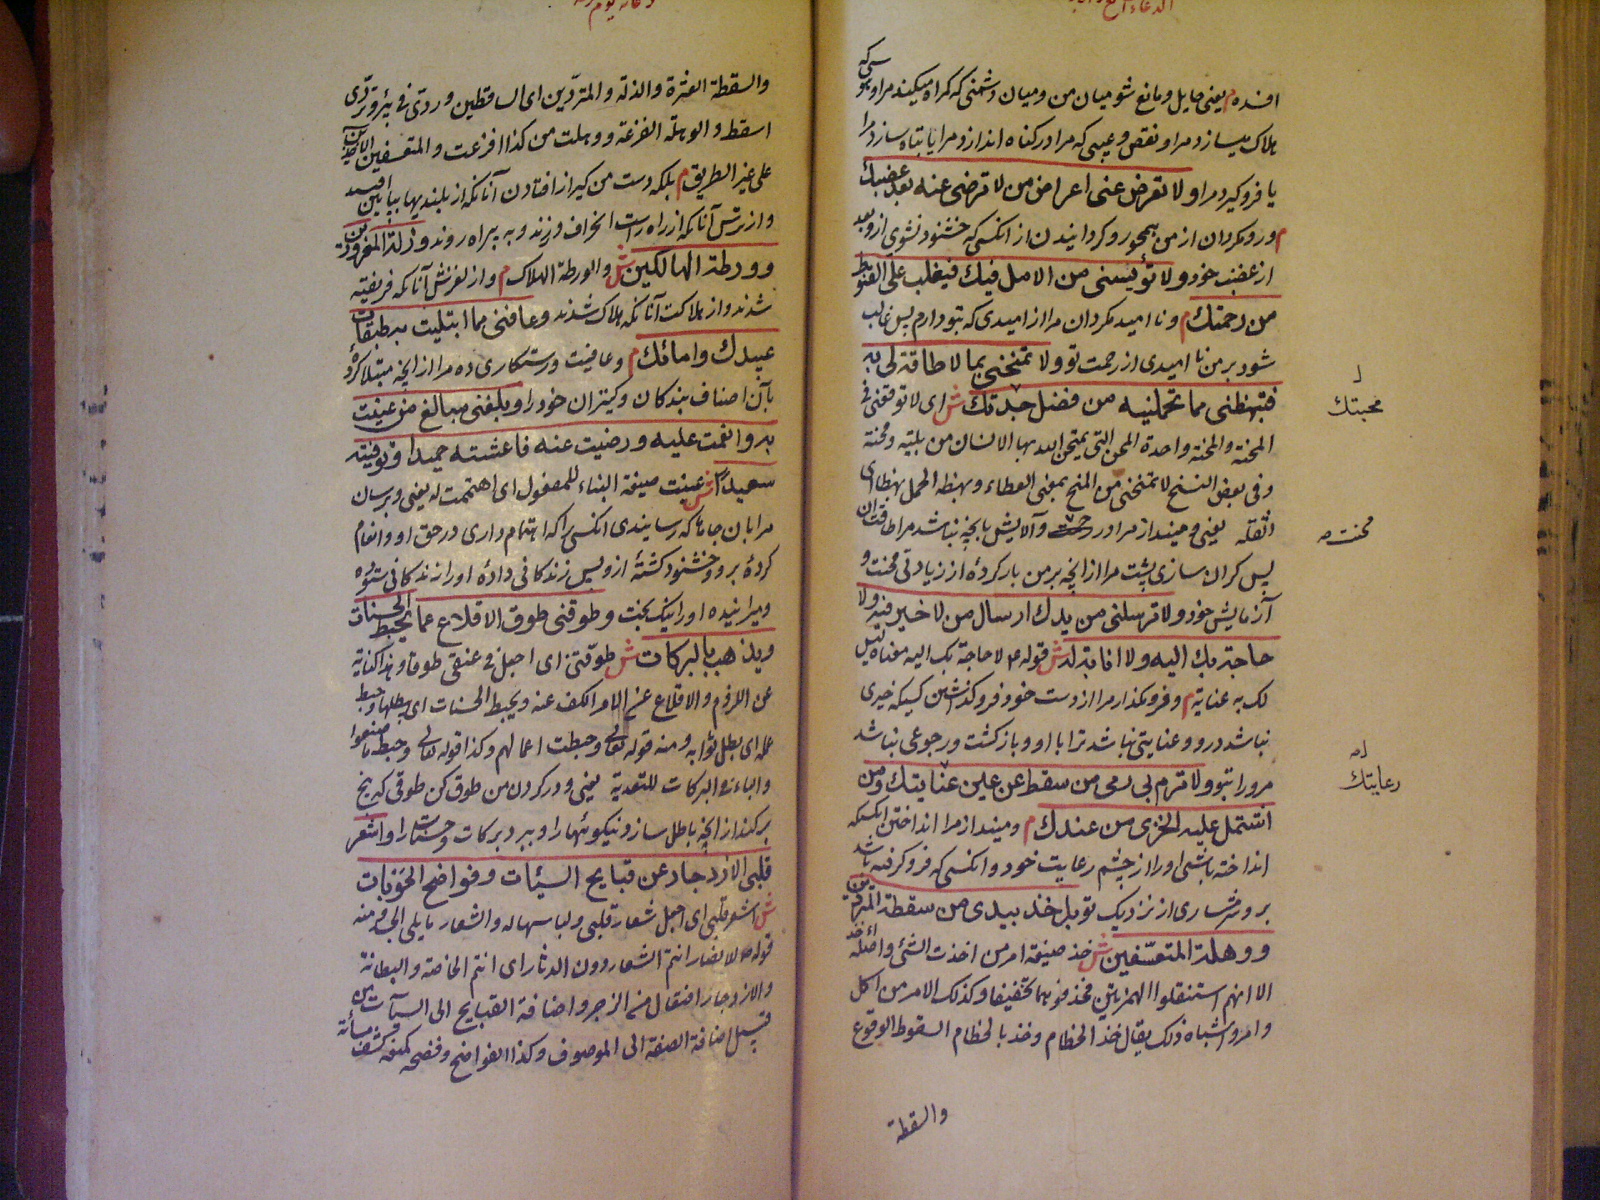 افنده م یعنی حایل و مانع شو میان من و میان دشمنی که گمراه میکند مرا و
هلاک میسازد مرا و نقص و عیبی که مرا در گناه اندازد و مرا یا تباه سازد مرا
یا فرو گیرد مرا و لا تعرض عنی اعراض من لا ترضی عنه بعد غضبك
م و رو مگردان از من همچو رو گردانیدن از انکسی که خشنود نشوی از و بعد
از غضب خود و لا تؤیسنی من الامل فیك فیغلب علی القنوط
من رحمتك م و نا امید مگردان مرا از امیدی که بتو دارم پس غالب
شود بر من نا امیدی از رحمت تو و لا تمنحنی بما لا طاقة لی به
فتبهظنی مما تحملنیه من فضل محبتك ش ای لا توقعنی فی
المحنة والمحنة واحدة المحن التی یمتحن الله بها الانسان من بلیة و محنة
و فی بعض النسخ لا تمنحنی من المنح بمعنی العطاء و بهظه الحمل بهظا ای
اثقله یعنی و مینداز مرا در و آلایش بانچه نباشد مرا طاقت ان
پس گران سازی پشت مرا از انچه بر من بار کردهٔ از زیادتی محنت و
آزمایش خود و لا ترسلنی من یدك ارسال من لا خیر فیه و لا
حاجة بك الیه و لا انابة له ش قوله ع لا حاجة بک الیه معناه لیس
لک به عنایة م و فرو مگذار مرا از دست خود فرو گذاشتن کسیکه خیری
نباشد درو و عنایتی نباشد ترا با او و بازگشت و رجوعی نباشد
مرورا بتو و لا ترم بی رمی من سقط عن عین رعایتك و من
اشتمل علیه الخزی من عندك م و مینداز مرا انداختن انکسیکه
انداخته باشی او را از چشم رعایت خود و انکسی که فرو گرفته باشد
برو شرمساری از نزدیک تو بل خذ بیدی من سقطة المتردین
و وهلة المتعسفین ش خذ صیغة امر من اخذت الشئ و اصله
الا انهم استثقلوا الهمزتین فحذفوهما تخفیفا و کذلک الامر من اکل
و امر و اشباه ذلک یقال خذ الخطام و خذ بالخطام السقوط الوقوع
والسقطة
محبتك
محنت
رعایتك
والسقطة العثرة والذلة والمتردین ای الساقطین و ردی فی بئر و تردی
اسقط و الوهلة الفزعة و وهلت من کذا افزعت و المتعسفین الآخذین
علی غیر الطریق م بلکه دست من گیر از افتادن آنانکه از بلندیها بپایین افتند
و از ترس آنانکه از راه راست انحراف ورزند و به بیراه روند و زلة المغرورین
و ورطة الهالکین ش و الورطة الهلاک م و از لغزش آنانکه فریفته
شدند و از هلاکت آنانکه هلاک شدند و عافنی مما ابتلیت به طبقات
عبیدك و امائك م و عافیت و رستگاری ده مرا از انچه مبتلا کردهٔ
بآن اصناف بندگان و کنیزان خود را و بلغنی مبالغ من عنیت
به و انعمت علیه و رضیت عنه فاعشته حمیدا و توفیته
سعیدا ش عنیت صیغة البناء للمفعول ای اهتممت له یعنی و برسان
مرا بان جاها که رسانیدی انکسی را که اهتمام داری در حق او و انعام
کردهٔ برو و خشنود گشتهٔ ازو پس زندگانی دادهٔ او را زندگانی ستوده
و میرانیده او را نیک بخت و طوقنی طوق الاقلاع عما یحبط الحسنات
و یذهب بالبرکات ش طوقنی ای اجعل فی عنقی طوقا و هذا کنایة
عن اللزوم و الاقلاع عن الامر الکف عنه و یحبط الحسنات ای یبطلها و حبط
عمله ای بطل ثوابه و منه قوله تعالی و حبطت اعمالهم و کذا قوله تعالی و حبط ما صنعوا
و الباء فی البرکات للتعدیة یعنی و در گردن من طوق کن طوقی که بیخ
برکند از انچه باطل سازد نیکوئیها را و ببرد برکات و حسنات را و اشعر
قلبی الازدجار عن قبایح السیئات و فواضح الحوبات
ش اشعر قلبی ای اجعل شعار قلبی و لباسها له و الشعار ما یلی الجسد و منه
قوله ص للانصار انتم الشعار دون الدثار ای انتم الخاصة و البطانة
و الازدجار افتعال من الزجر و اضافة القبایح الی السیآت من
قبیل اضافة الصفة الی الموصوف و کذا الفواضح و فضحه کمنعه کشف